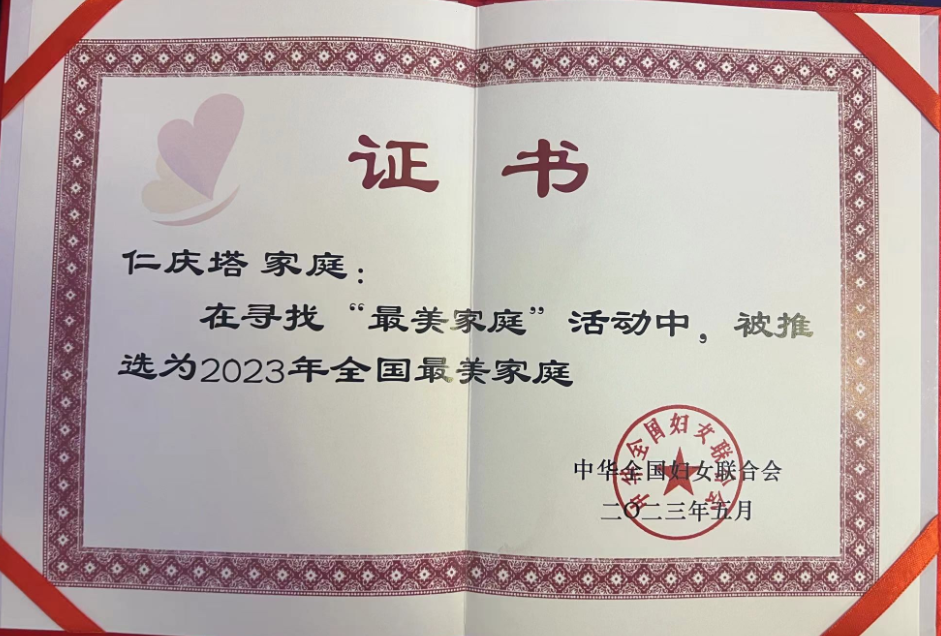 证书
仁庆塔 家庭：
在寻找“最美家庭”活动中，被推
选为2023年全国最美家庭
中华全国妇女联合会
中华全国妇女联合会
二〇二三年五月